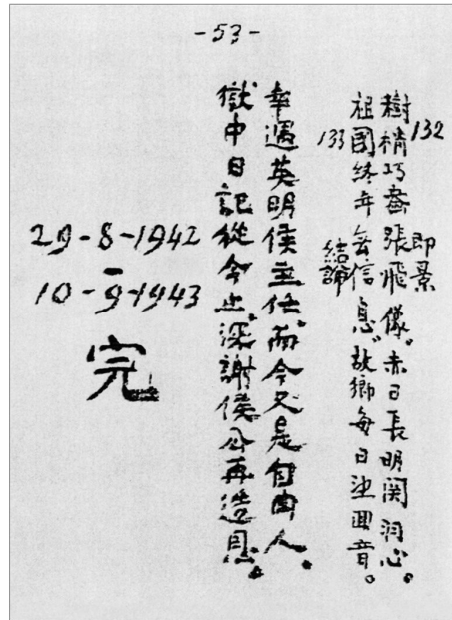 -53-
132
即景
樹梢巧畫張飛像。赤日長明関羽心。
祖國終年無信息，故鄉每日望回音。
133
結論
幸遇英明侯主任，而今又是自由人。
獄中日記從今止，深謝侯公再造恩。
29-8-1942
-
10-9-1943
完